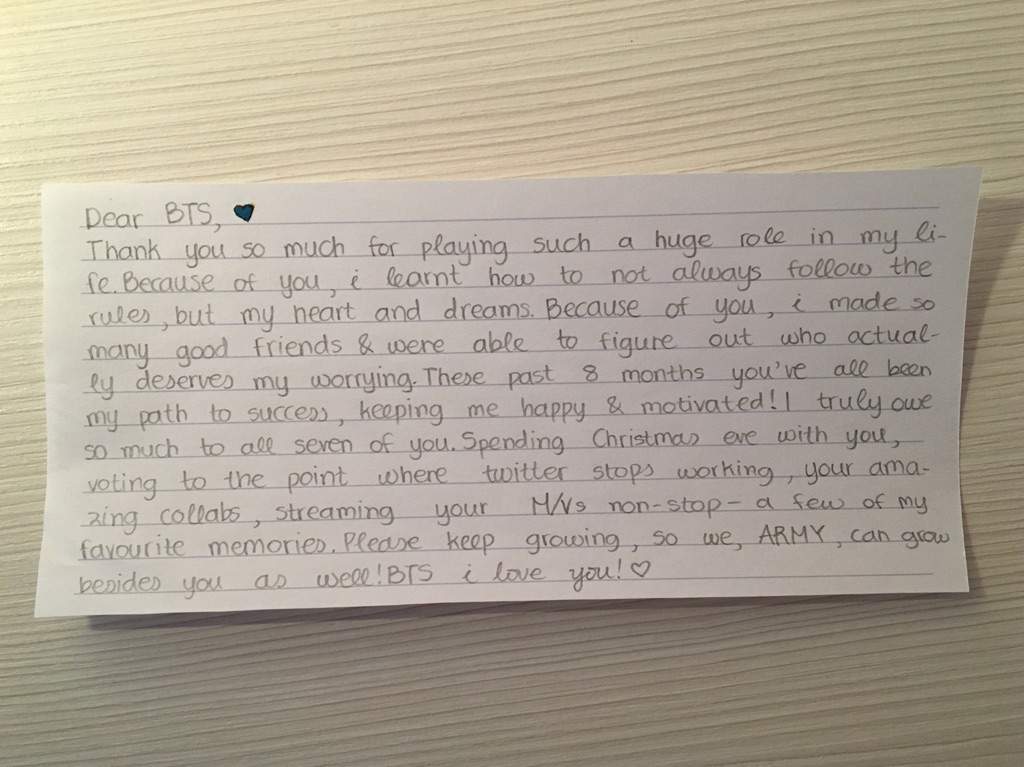 Dear BTS, 💙
Thank you so much for playing such a huge role in my li-
fe. Because of you, i learnt how to not always follow the
rules, but my heart and dreams. Because of you, i made so
many good friends & were able to figure out who actual-
ly deserves my worrying. These past 8 months you've all been
my path to success, keeping me happy & motivated! I truly owe
so much to all seven of you. Spending Christmas eve with you,
voting to the point where twitter stops working, your ama-
zing collabs, streaming your M/Vs non-stop - a few of my
favourite memories. Please keep growing, so we, ARMY, can grow
besides you as well! BTS i love you! ♡